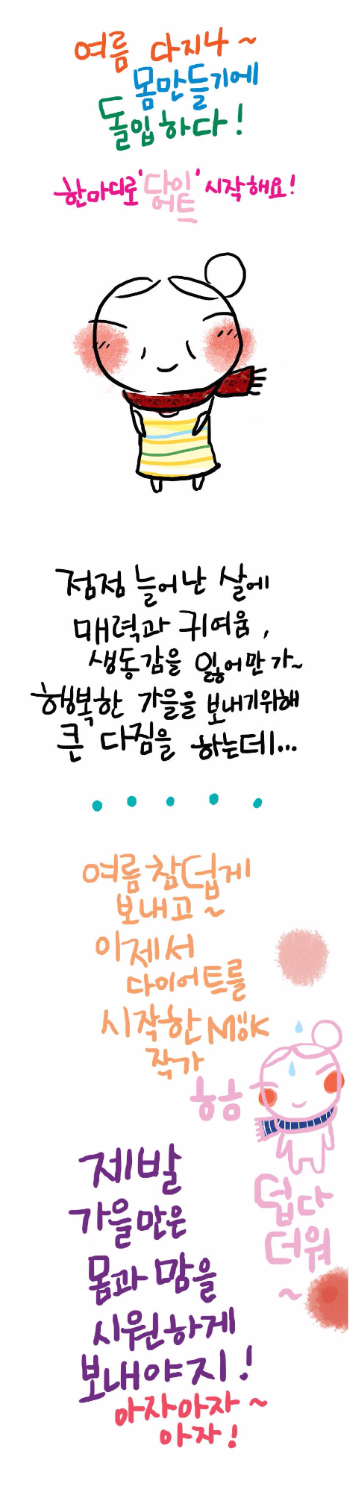 여름 다지나~
몸만들기에
돌입하다!
한마디로 '다이어트' 시작해요!
점점 늘어난 살에
매력과 귀여움,
생동감을 잃어만 가~
행복한 가을을 보내기위해
큰 다짐을 하는데...
여름 참덥게
보내고~
이제서
다이어트를
시작한 MiiK
작가
ㅎㅎ
덥다
더워
~
제발
가을만은
몸과 맘을
시원하게
보내야지!
아자아자~
아자!